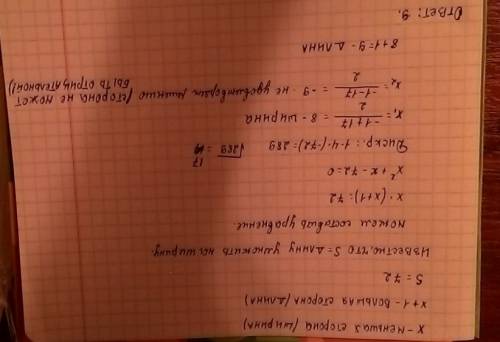 x - меньшая сторона (ширина)
x+1 - большая сторона (длина)
S = 72
Известно, что S = длину умножить на ширину.
Можем составить уравнение.
x · (x+1) = 72
x² + x - 72 = 0
Дискр.: 1-4·(-72) = 289 √289 = 17
x₁ = (-1+17)/2 = 8 - ширина
x₂ = (-1-17)/2 = -9 - не удовлетворят решению (сторона не может
быть отрицательной)
8+1=9 - длина
Ответ: 9.